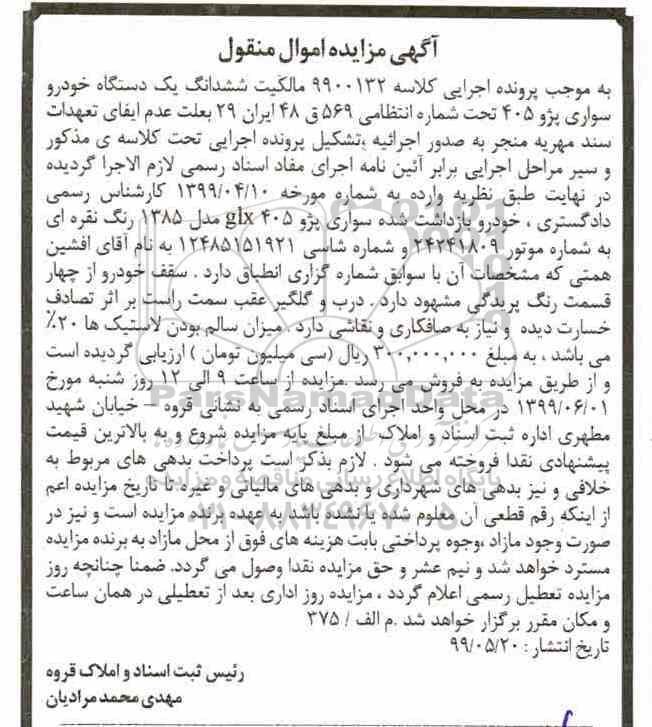 آگهی مزایده اموال منقول
به موجب پرونده اجرایی کلاسه ۹۹۰۰۱۳۲ مالکیت ششدانگ یک دستگاه خودرو
سواری پژو ۴۰۵ تحت شماره انتظامی ۵۶۹ ق ۴۸ ایران ۲۹ بعلت عدم ایفای تعهدات
سند مهریه منجر به صدور اجرائیه ،تشکیل پرونده اجرایی تحت کلاسه ی مذکور
و سیر مراحل اجرایی برابر آئین نامه اجرای مفاد اسناد رسمی لازم الاجرا گردیده
در نهایت طبق نظریه وارده به شماره مورخه ۱۳۹۹/۰۴/۱۰ کارشناس رسمی
دادگستری ، خودرو بازداشت شده سواری پژو ۴۰۵ glx مدل ۱۳۸۵ رنگ نقره ای
به شماره موتور ۲۴۲۴۱۸۰۹ و شماره شاسی ۱۲۴۸۵۱۵۱۹۲۱ به نام آقای افشین
همتی که مشخصات آن با سوابق شماره گزاری انطباق دارد . سقف خودرو از چهار
قسمت رنگ پریدگی مشهود دارد . درب و گلگیر عقب سمت راست بر اثر تصادف
خسارت دیده و نیاز به صافکاری و نقاشی دارد . میزان سالم بودن لاستیک ها ۲۰٪
می باشد ، به مبلغ ۳۰۰,۰۰۰,۰۰۰ ریال (سی میلیون تومان ) ارزیابی گردیده است
و از طریق مزایده به فروش می رسد .مزایده از ساعت ۹ الی ۱۲ روز شنبه مورخ
۱۳۹۹/۰۶/۰۱ در محل واحد اجرای اسناد رسمی به نشانی قروه – خیابان شهید
مطهری اداره ثبت اسناد و املاک از مبلغ پایه مزایده شروع و به بالاترین قیمت
پیشنهادی نقدا فروخته می شود . لازم بذکر است پرداخت بدهی های مربوط به
خلافی و نیز بدهی های شهرداری و بدهی های مالیاتی و غیره تا تاریخ مزایده اعم
از اینکه رقم قطعی آن معلوم شده یا نشده باشد به عهده برنده مزایده است و نیز در
صورت وجود مازاد ،وجوه پرداختی بابت هزینه های فوق از محل مازاد به برنده مزایده
مسترد خواهد شد و نیم عشر و حق مزایده نقدا وصول می گردد. ضمنا چنانچه روز
مزایده تعطیل رسمی اعلام گردد ، مزایده روز اداری بعد از تعطیلی در همان ساعت
و مکان مقرر برگزار خواهد شد .م الف / ۳۷۵
تاریخ انتشار : ۹۹/۰۵/۲۰
رئیس ثبت اسناد و املاک قروه
مهدی محمد مرادیان
ParsNamadData
پایگاه اطلاع رسانی مناقصه و مزایده
۰۲۱-۸۸۳۴۹۶۷۰-۵